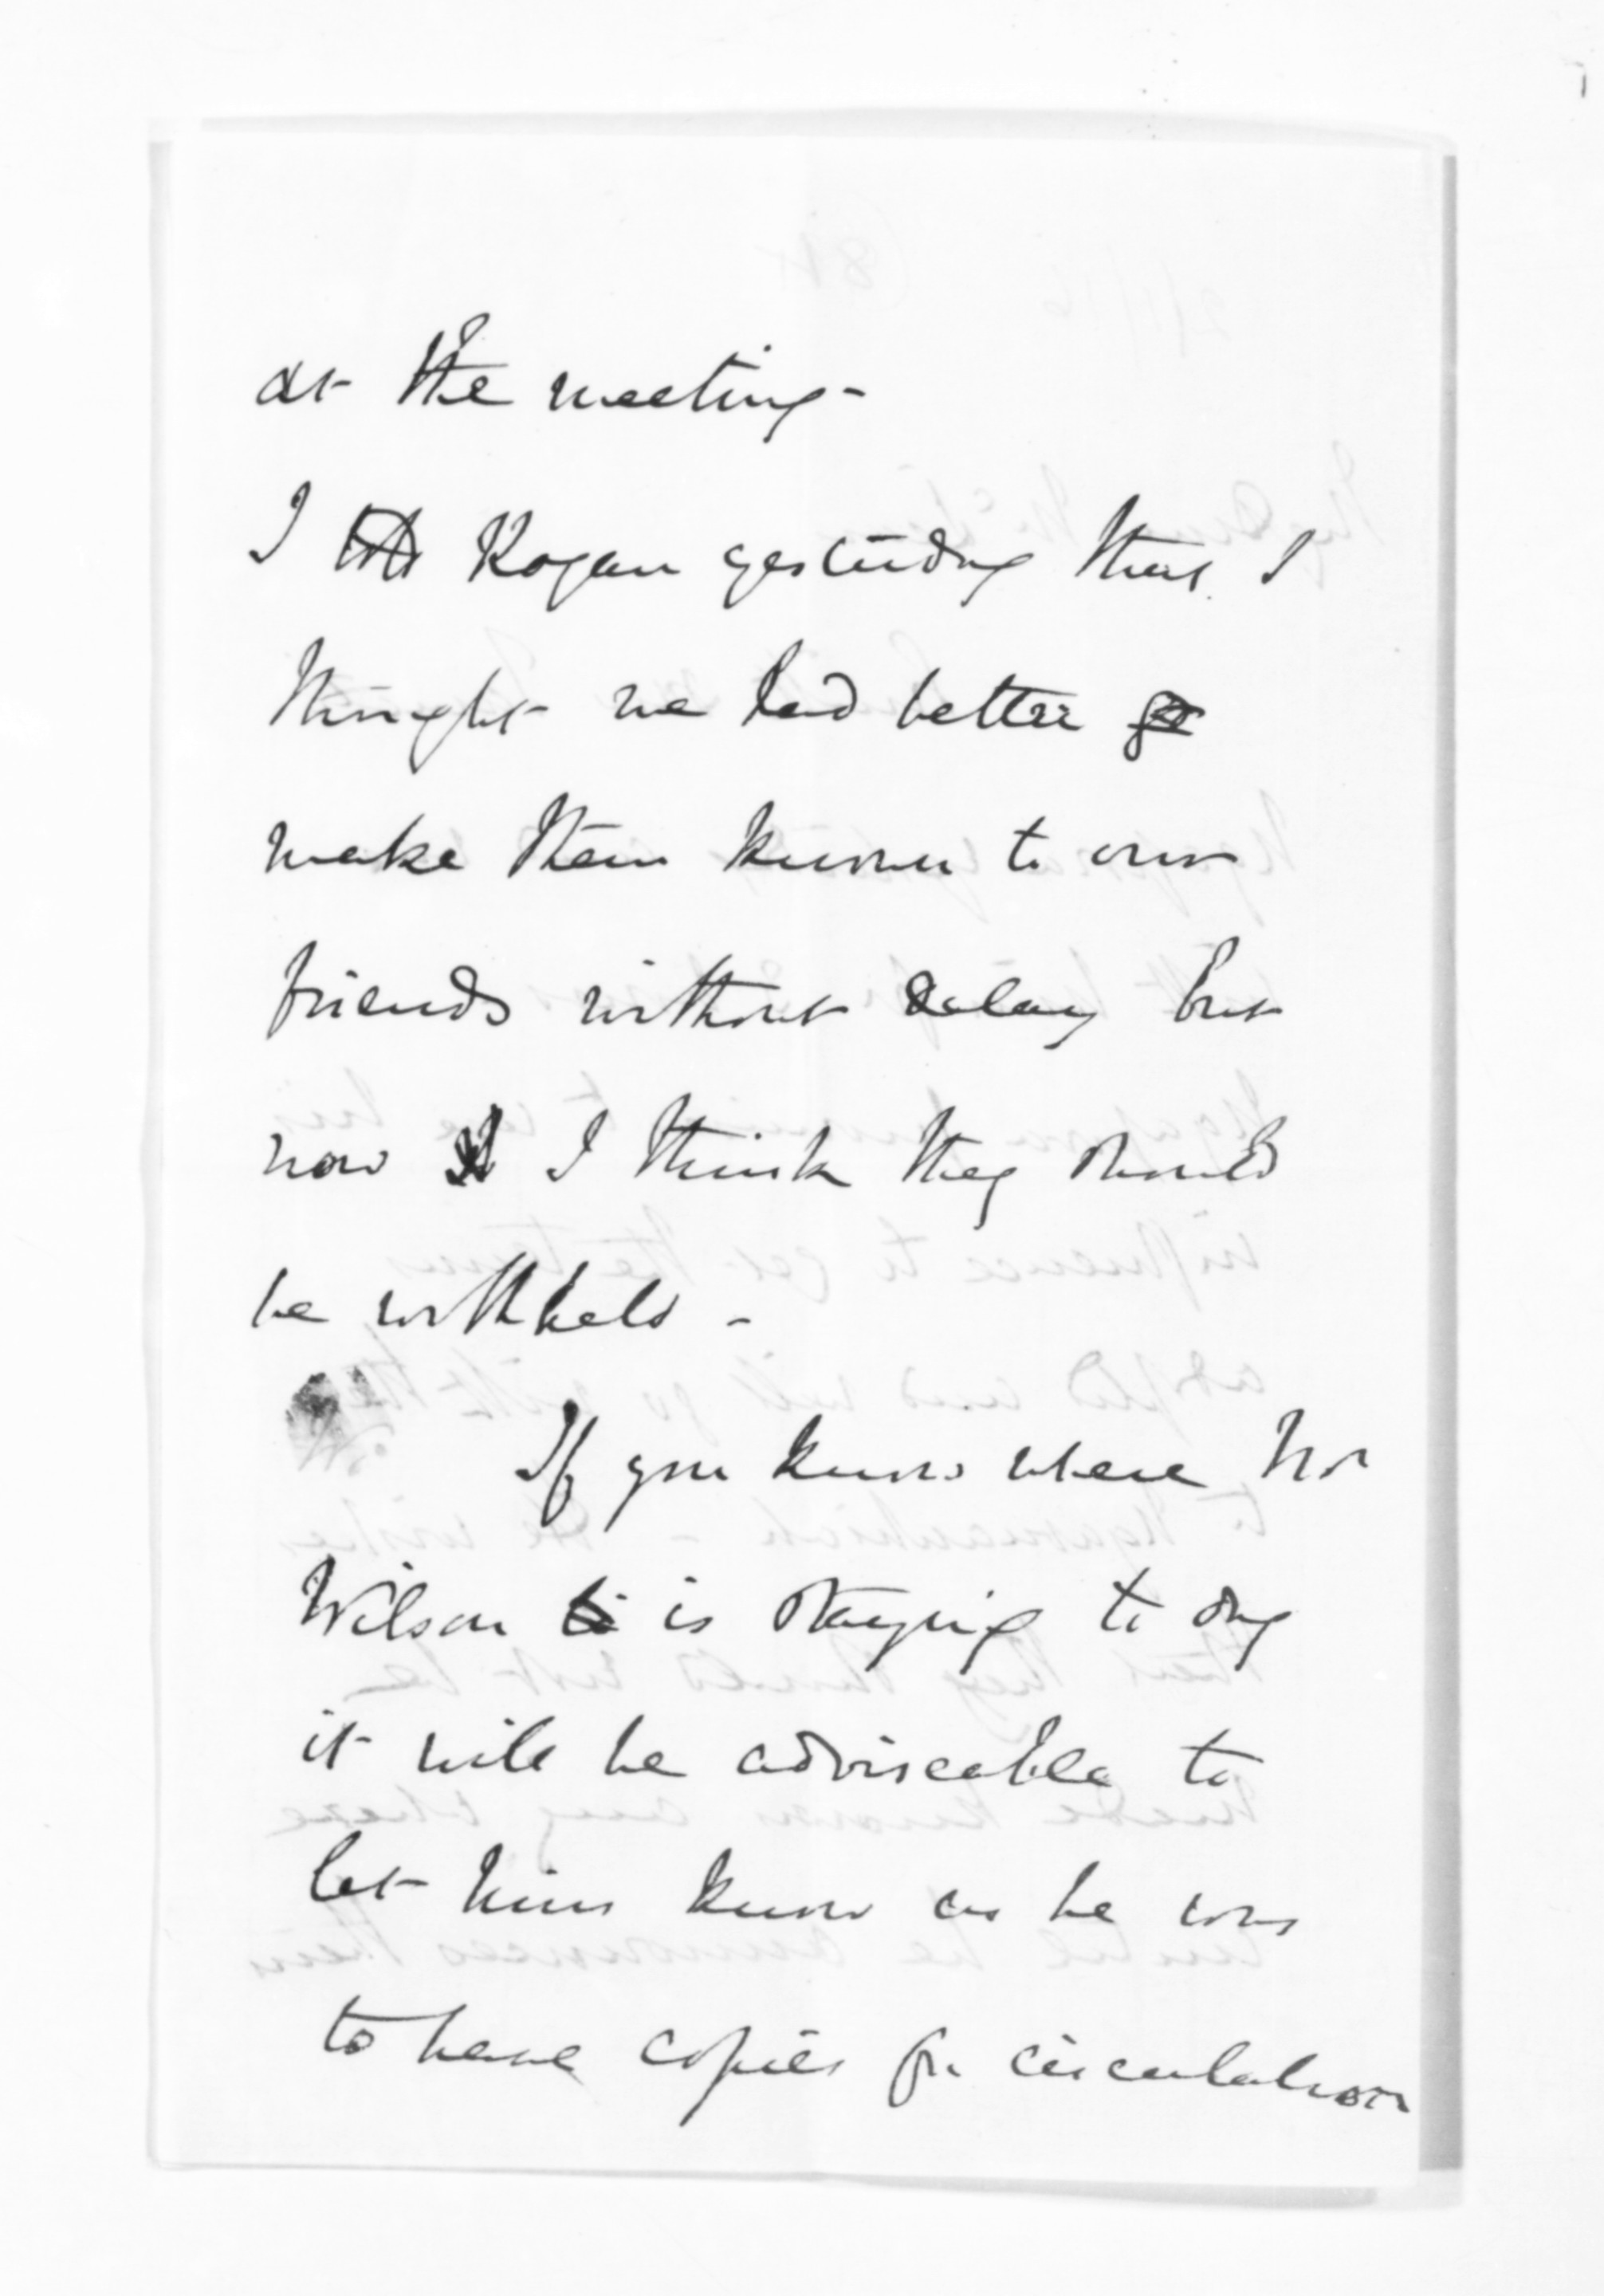 at the meeting -
I Rogan yesterday that I
thought we had better
make them known to our
friends without delay but
now I think they should
be withheld -
If you know where Mr
Wilson is staying to day
it will be adviseable to
let him know as he was
to have copies for circulation